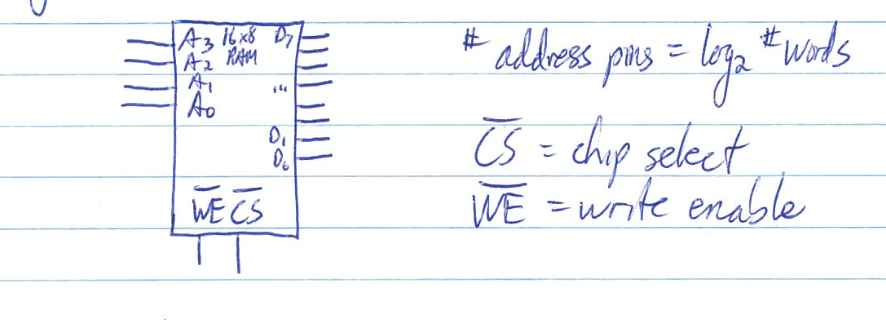 A₃ 16x8 D₇
A₂ RAM
A₁ ...
A₀
D₁
D₀
W̅E̅ C̅S̅
# address pins = log₂ # words
C̅S̅ = chip select
W̅E̅ = write enable